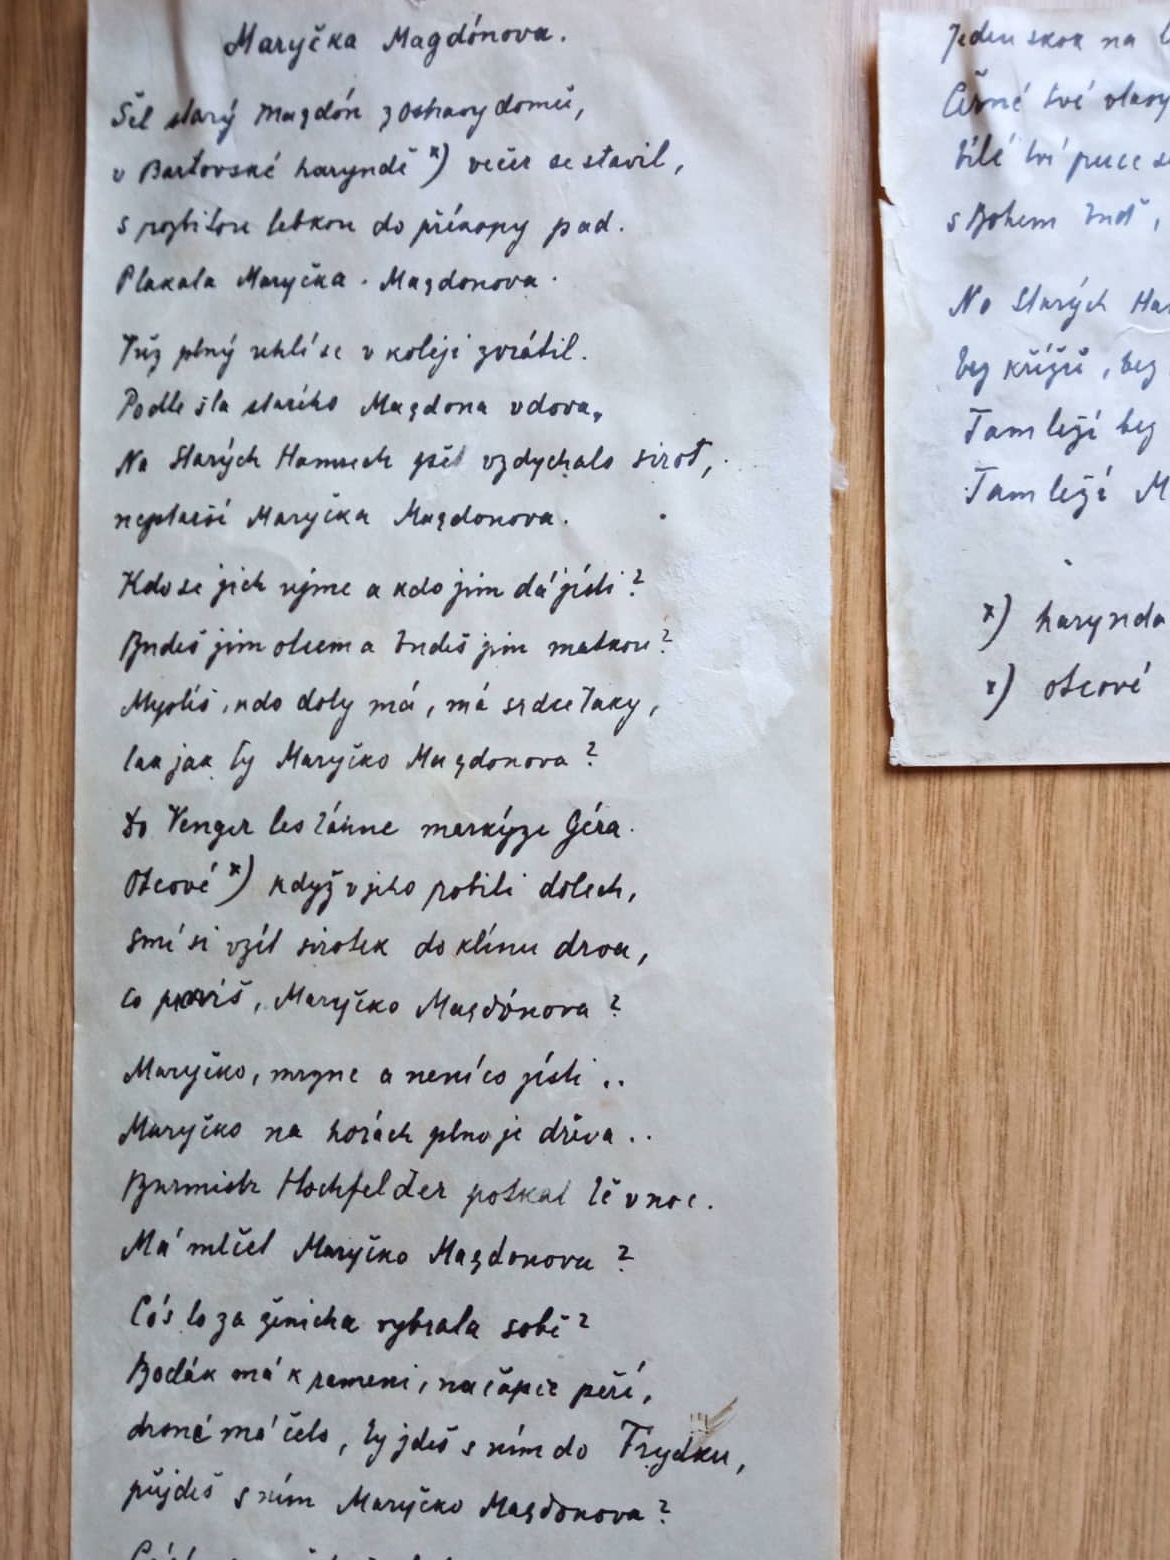 Maryčka Magdónova.
Šel starý Magdón z Ostravy domů,
v Bartovské haryndě x) večer se stavil,
s rozbitou lebkou do příkopy pad.
Plakala Maryčka Magdonova.
Vůz plný uhlí se v koleji zvrátil.
Podle šla starého Magdona vdova,
Na Starých Hamrech pět vzdychalo sirot,
nejstarší Maryčka Magdonova.
Kdo se jich ujme a kdo jim dá jísti?
Budeš jim otcem a budeš jim matkou?
Myslíš, kdo doly má, má srdce taky,
tak jak ty Maryčko Magdonova?
Do Venger les žánne markýze Géra.
Otcové x) když v jeho robili dolech,
smí si vzít sirotek do klínu drva,
co pravíš, Maryčko Magdónova?
Maryčko, mrzne a není co jísti ..
Maryčko na horách plno je dřeva ..
Burmistr Hochfelder potkal tě v noc.
Má mlčet Maryčko Magdonova?
Cós to za ženicha vybrala sobě?
Bodák má k rameni, na čapce peří,
drsné má čelo, ty jdeš s ním do Frydku,
půjdeš s ním Maryčko Magdonova?
Jeden skok na
Černé tvé vlasy
bílé tvé ruce
s Bohem buď,
Na Starých
bez křížů, bez
Tam leží bez
Tam leží
x) harynda
x) otcové